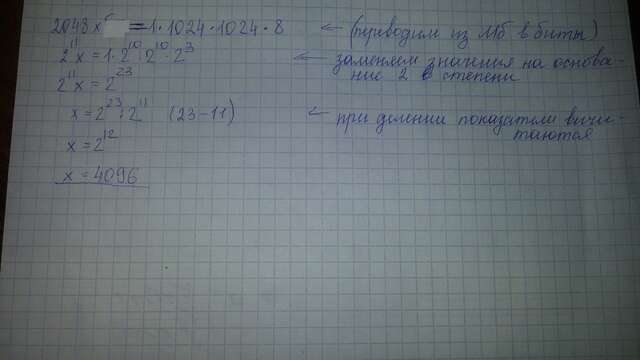 2048x = 1·1024·1024·8 ← (переводим из Мб в биты)
2¹¹x = 1·2¹⁰·2¹⁰·2³ ← заменяем значения на основа-
ние 2 в степени
2¹¹x = 2²³
x = 2²³:2¹¹ (23-11) ← при делении показатели вычи-
таются
x = 2¹²
x = 4096